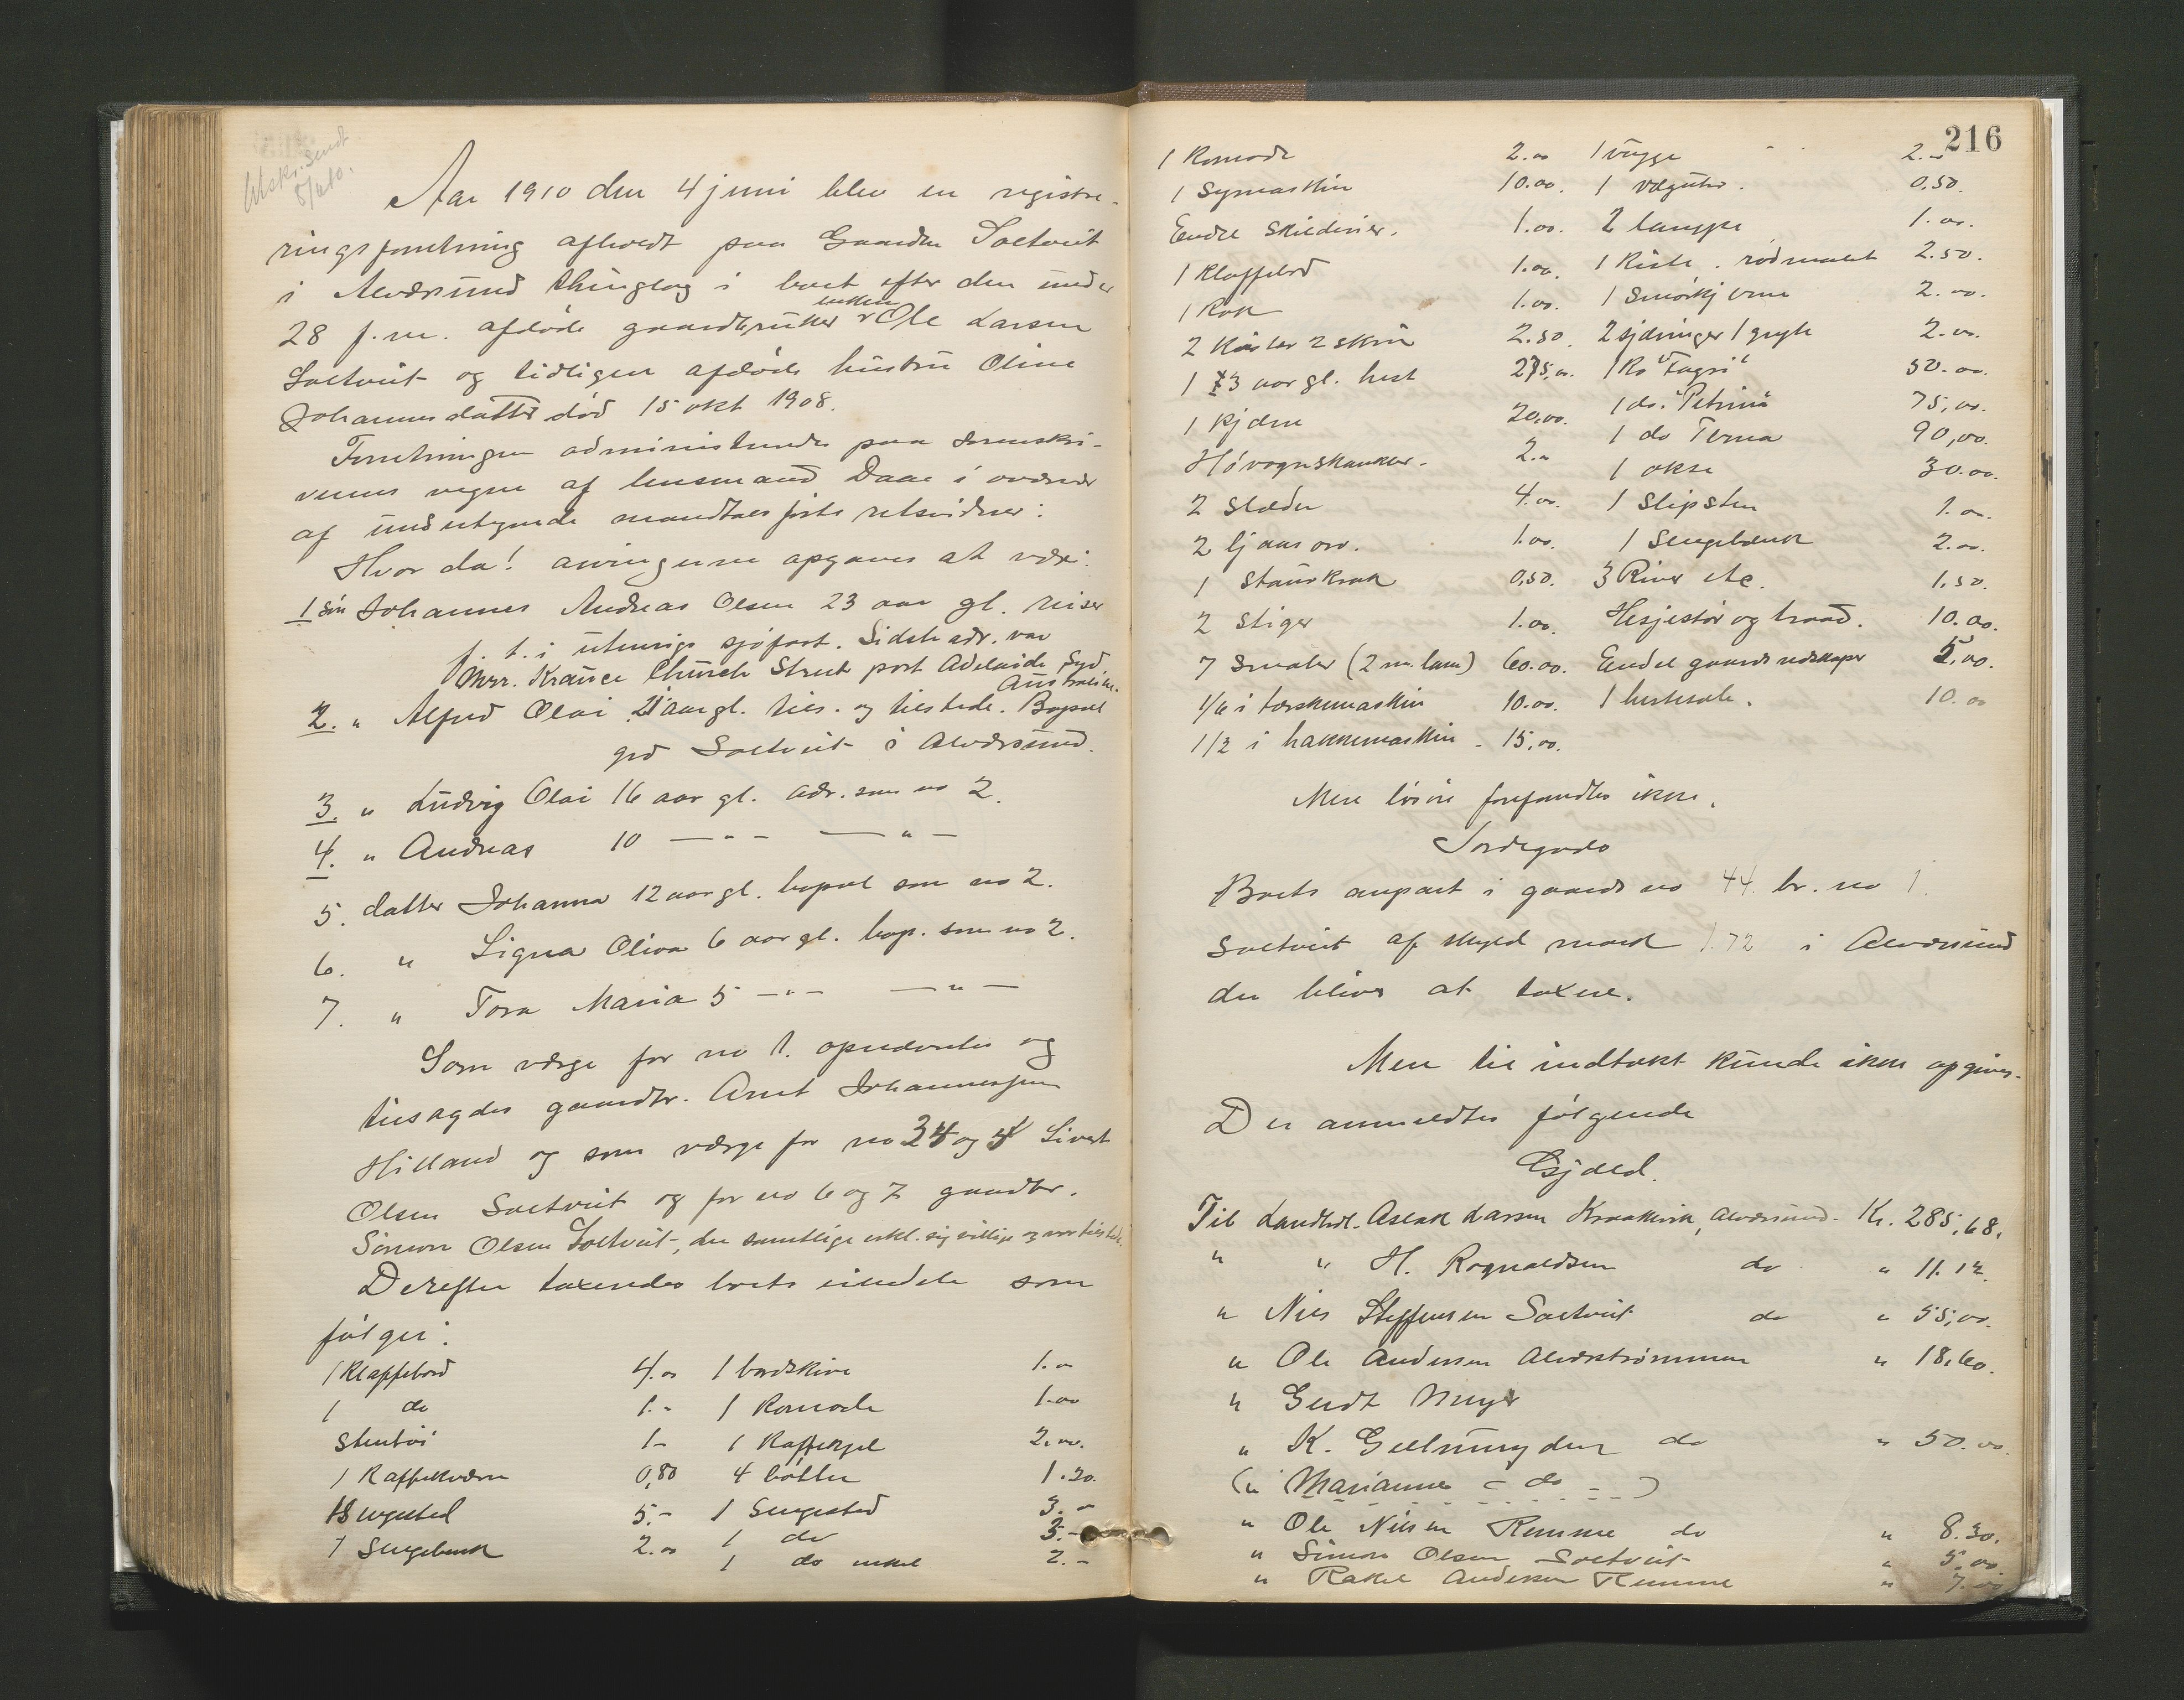 Utskr. sendt
8/6 10.
Aar 1910 den 4 juni blev en registre-
ringsforretning afholdt paa Gaarden Soltveit
i Alversund thinglag i boet efter den under
28 f.m. afdøde gaardbruker enkem. Ole Larsen
Soltveit og tidligere afdøde hustru Oline
Johannesdatter død 15 okt 1908.
Forretningen administreredes paa Sorenskri-
verens vegne af lensmand Daae i overvær
af undertegnede mandtalsførte retsvidner:
Hvor da! arvingerne opgaves at være:
1 søn Johannes Andreas Olsen 23 aar gl. reiser
f. t. i utenrigs sjøfart. Sidste adr. var
Mrr. Krause Church Street port Adelaide Syd
Australien.
2. " Alfred Olai 21 aar gl. tils. og tilstede. Bopæl
grd Soltveit i Alversund.
3. " Ludvig Olai 16 aar gl. adr. som no 2.
4. " Andreas 10 — " — — " —
5. datter Johanna 12 aar gl. bopæl som no 2.
6. " Signa Oliva 6 aar gl. bop. som no 2.
7. " Tora Maria 5 — " — — " —
Som værge for no 1. opnævntes og
tilsagdes gaardbr. Arnt Johannessen
Hilland og som værge for no 3 4 og Sivert
Olsen Soltveit og for no 6 og 7 gaardbr.
Simon Olsen Soltveit, der samtlige erkl. sig villige og var tilstede.
Derefter taxeredes boets eiendele som
følger:
1 Klaffebord 4.00 1 bordskive 1.00
1 do 1.- 1 Komode 1.00
Stentøi 1- 1 Kaffekjel 2.00.
1 Kaffekværn 0,80 4 bøtter 1.20.
1 Sengested 5.- 1 Sengested 3.00
1 Sengebenk 2.00 1 do 3.-
1 do enkel 2.-
216
1 Komode 2.00 1 vugge 2.-
1 Symaskin 10.00. 1 vægtur. 0,50.
Endel Skilderier. 1.00. 2 lamper 1.00.
1 Klaffebord 1.00. 1 Kiste, rødmalt 2.50.
1 Rok 1.00. 1 Smørkjerne 2.00.
2 Kister 2 skrin 2.50. 2 sjdninger 1 gryte 2.00.
1 3 aar gl. hest 275,00. 1 Ko "Fagri" 50.00.
1 Kjærre 20,00. 1 do. "Petrina" 75,00.
Høvognskanker. 2.00 1 do Terna 90,00.
2 Slæder 4.00. 1 okse 30.00.
2 ljaar orv. 1.00. 1 Slipsten 1.00.
1 Staurkrak 0,50. 1 Sengebenk 2.00.
2 Stiger 1.00. 3 River etc. 1,50.
7 Smaler (2 m. lam) 60.00. Hesjestør og traad. 10.00.
1/6 i tærskemaskin 10.00. Endel gaardsredskaper 5,00.
1/2 i hakkemaskin - 15,00. 1 hestesele. 10.00
Mere løsøre forefandtes ikke.
Jordegods
Boets anpart i gaards no 44 br. no 1
Soltveit af skyld mark 1.72 i Alversund
der bliver at taxere.
Mere til indtækt kunde ikke opgives.
Der anmeldtes følgende
Gjæld.
Til Landhdl. Aslak Larsen Kraakvik, Alversund. Kr. 285,68.
" " H. Ragnvaldsen do " 11.12.
" Nils Steffensen Soltveit do " 55,00.
" Ole Andersen Alverstrømmen " 18,60.
" Gerdt Meyer
" K. Gullmeyden do " 50.00.
(" Marianne - do - )
" Ole Nilsen Remme do " 8.30.
" Simon Olsen Soltveit " 5,00.
" Rakel Andersen Remme " 7.00